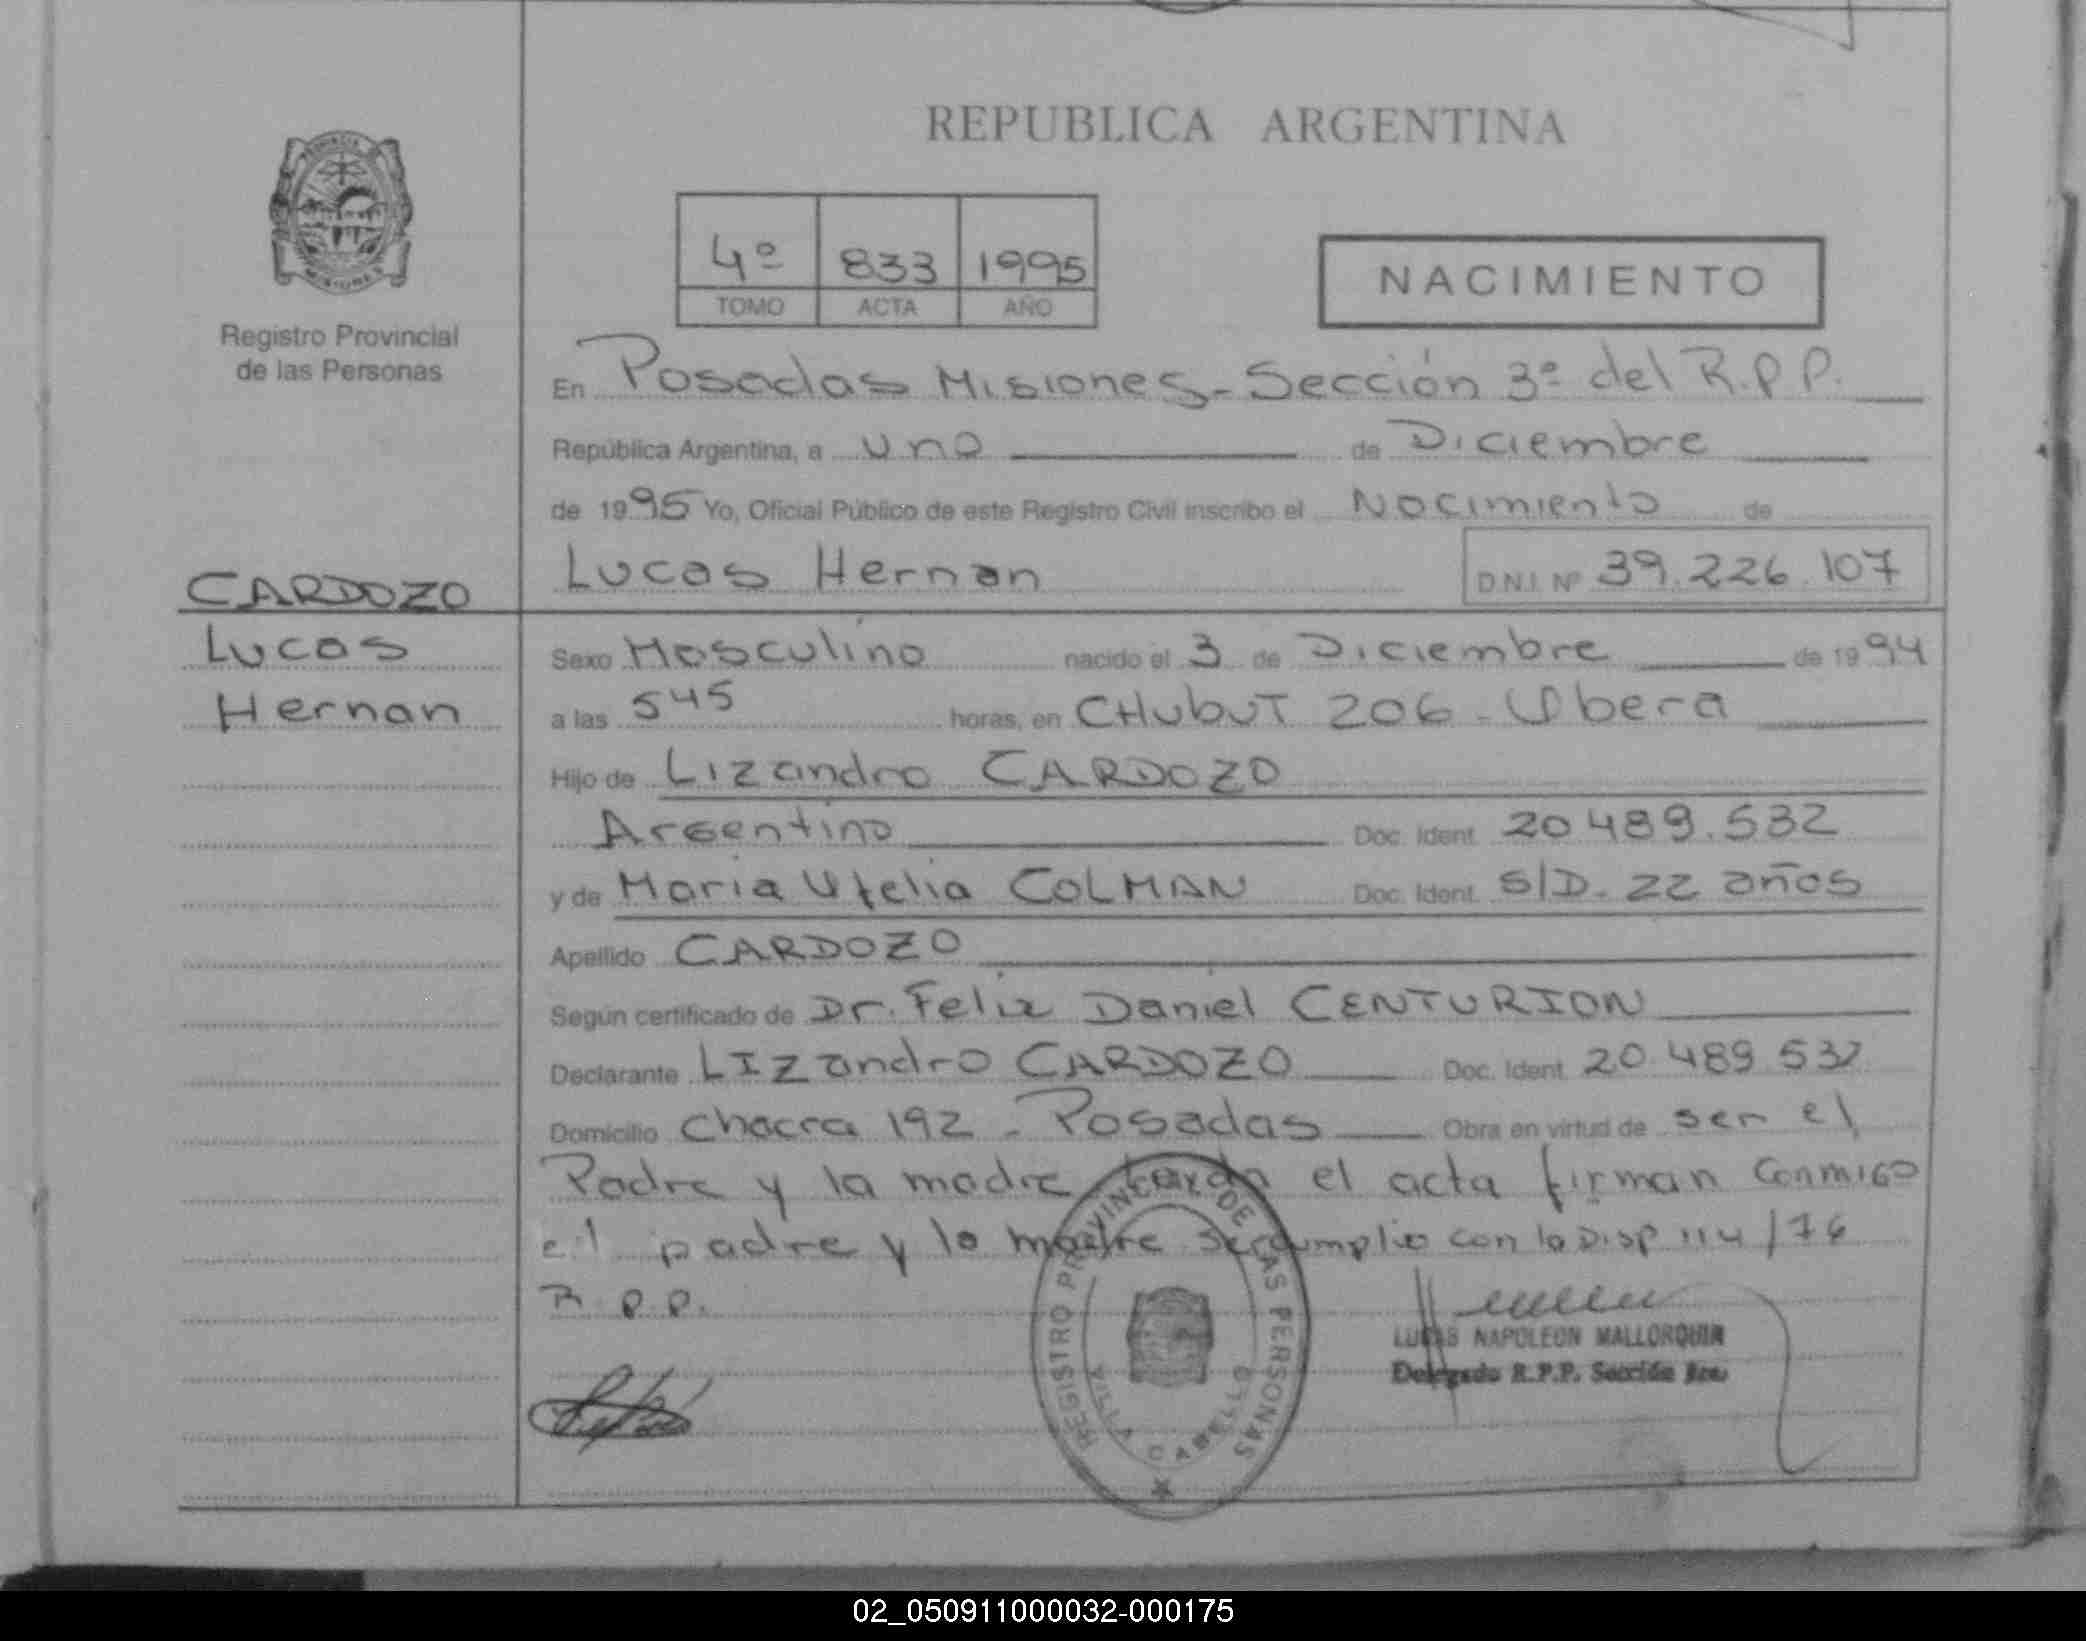 REPUBLICA ARGENTINA
4º 833 1995
TOMO ACTA AÑO
NACIMIENTO
Registro Provincial
de las Personas
En Posadas Misiones - Sección 3ª del R.P.P.
República Argentina, a uno de Diciembre
de 1995 Yo, Oficial Público de este Registro Civil inscribo el Nacimiento de
Lucas Hernan D.N.I. Nº 39.226.107
CARDOZO
Lucas
Hernan
Sexo Masculino nacido el 3 de Diciembre de 1994
a las 545 horas, en CHubuT 206 - Obera
Hijo de Lizandro CARDOZO
Argentino Doc. Ident. 20 489.532
y de Maria Ufelia COLMAN Doc. Ident. S/D. 22 años
Apellido CARDOZO
Según certificado de Dr. Felix Daniel CENTURION
Declarante LIZandro CARDOZO Doc. Ident. 20 489 532
Domicilio Chacra 192 - Posadas Obra en virtud de ser el
Padre y la madre el acta firman conmigo
el padre y la madre se cumplio con la Disp 114/76
R.P.P.
REGISTRO PROVINCIAL DE LAS PERSONAS
VILLA CABELLO
LUCAS NAPOLEON MALLORQUIN
Delegado R.P.P. Sección 3ra.
02_050911000032-000175